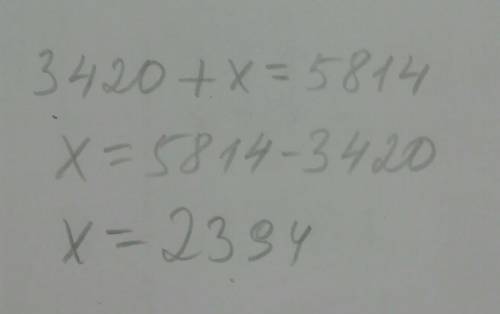 3420+x=5814
x=5814-3420
x=2394